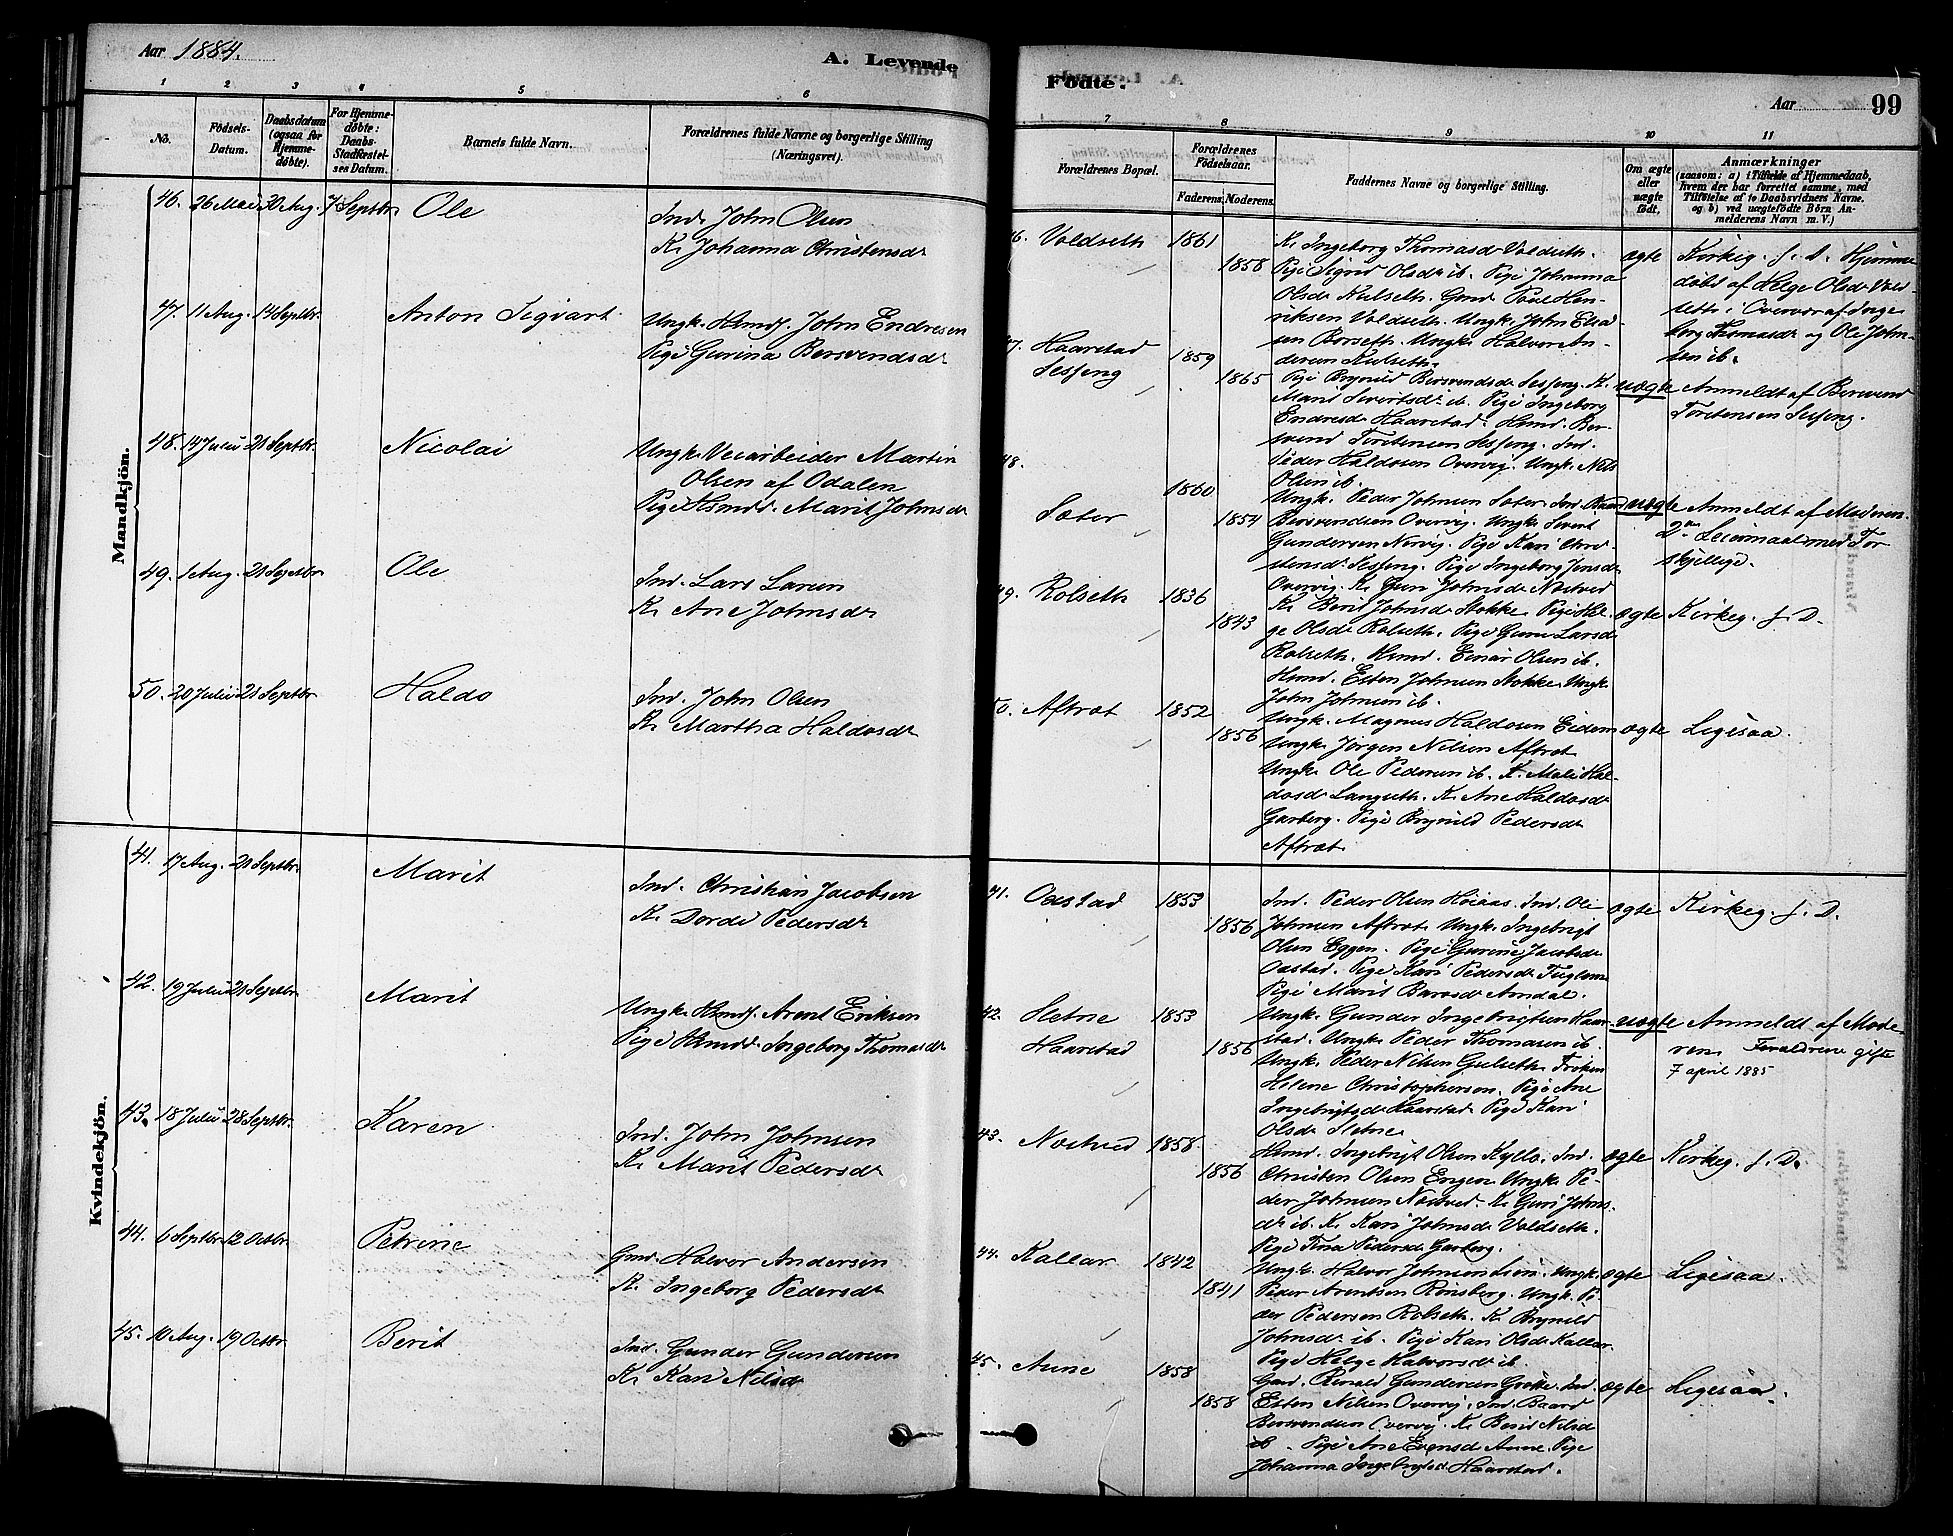 Aar 1884.
A. Levende
Fødte.
Aar 99
1 2 3 4 5 6
7 8 9 10 11
No.
Fødsels-
Datum.
Daabsdatum
(ogsaa for
Hjemme-
døbte).
For Hjemme-
døbte:
Daabs-
Stadfæstel-
ses Datum.
Barnets fulde Navn.
Forældrenes fulde Navne og borgerlige Stilling
(Næringsvei).
Forældrenes Bopæl.
Forældrenes
Fødselsaar.
Faderens. Moderens.
Faddernes Navne og borgerlige Stilling.
Om ægte
eller
uægte
født.
Anmærkninger
(saasom: a) i Tilfælde af Hjemmedaab,
hvem der har forrettet samme, med
Tilføielse af to Daabsvidners Navne,
og b) ved uægtefødte Børn An-
melderens Navn m. V.)
Mandkjön.
46. 26 Mai 30 Aug. 7 Septbr Ole
Ind. John Olsen
K. Johanna Christensdr
46. Voldseth 1861
1858
K. Ingeborg Thomasdr Voldseth.
Pige Sigrid Olsdr ib. Pige Johanna
Olsdr Kulseth. Gmd. Paul Hen-
riksen Voldseth. Ungk. John
sen Borseth. Ungk. Halvor An-
dersen Kulseth.
ægte
Kirkeg. f. D. Hjemme
døbt af Helge Olsdr Vold-
seth i Overvær af Inge-
borg Thomasdr og Ole John-
sen ib.
47. 11 Aug. 14 Septbr. Anton Sigvart
Ungk. Hsmdf. John Endresen
Pige Gurina Bersvendsdr
47. Haarstad
Sesseng
1859
1865
Pige Brynild Bersvendsdr Sesseng. K.
Marit Sivertsdr ib. Pige Ingeborg
Endresdr Haarstad. Hsmd. Ber-
svend Torstensen Sesseng. Ind.
Peder Haldosen Overvig. Ungk. Nils
Olsen ib.
uægte
Anmeldt af Bersvend
Torstensen Sesseng.
48. 14 Juli 21 Septbr. Nicolai
Ungk. Veiarbeider Martin
Olsen af Odalen
Pige Hsmdd. Marit Johnsdr
48.
Sæter
1860
1854
Ungk. Peder Johnsen Sæter. Ind. Baard
Bersvendsen Overvig. Ungk. Sivert
Gundersen Nervig. Pige Kari Chri-
stensdr Sesseng. Pige Ingeborg Jensdr
Overvig. K. Guri Johnsdr Nøstved
uægte
Anmeldt af Moderen.
2det Leiermaal med For-
skjellige.
49. 1 Aug. 21 Septbr Ole
Ind. Lars Larsen
K. Ane Johnsdr
49. Rolseth 1836
1843
K. Berit Johnsdr Stokke. Pige Hel-
ge Olsdr Rolseth. Pige Guru Larsdr
Rolseth. Hsmd. Einar Olsen ib.
Hsmd. Esten Johnsen Stokke. Ungk.
John Johnsen ib.
ægte
Kirkeg. f. D.
50. 20 Juli 21 Septbr Haldo
Ind. John Olsen
K. Martha Haldosdr
50. Aftret 1852
1856
Ungk. Magnus Haldosen Eidem
Ungk. Jørgen Nilsen Aftret
Ungk. Ole Pedersen ib. K. Mali Hal-
dosdr Langseth. K. Ane Haldosdr
Garberg. Pige Brynild Pedersdr
Aftret
ægte
Ligesaa.
Kvindekjön.
41. 17 Aug. 21 Septbr. Marit
Ind. Christian Jacobsen
K. Dorde Pedersdr
41. Oastad 1853
1856
Ind. Peder Olsen Høiaas. Ind. Ole
Johnsen Aftret. Ungk. Ingebrigt
Olsen Eggen. Pige Gurine Jacobsdr
Oastad. Pige Kari Pedersdr Fuglem
Pige Marit Baarsdr Amdal.
ægte
Kirkeg. f. D.
42. 19 Juli 21 Septbr. Marit
Ungk. Hsmdf. Arent Eriksen
Pige Hsmdd. Ingeborg Thomasdr
42. Setne
Haarstad
1853
1856
Ungk. Gunder Ingebrigtsen Haar-
stad. Ungk. Peder Thomasen ib.
Ungk. Peder Nilsen Gulseth. Frøken
Helene Christophersen. Pige Ane
Ingebrigtsdr Haarstad. Pige Kari
Olsdr Setne
uægte
Anmeldt af Mode-
ren. Forældrene gifte
7 april 1885
43. 18 Juli 28 Septbr. Karen
Ind. John Johnsen
K. Marit Pedersdr
43. Nøstved 1858
1856
Hsmd. Ingebrigt Olsen Kyllo. Ind.
Christen Olsen Engen. Ungk. Pe-
der Johnsen Nøstved. K. Guri Johns-
dr ib. K. Kari Johnsdr Voldseth.
Pige Tina Pedersdr Garberg.
ægte
Kirkeg. f. D.
44. 6 Septbr 12 Octbr. Petrine
Gmd. Halvor Andersen
K. Ingeborg Pedersdr
44. Kallar 1842
1841
Ungk. Halvor Johnsen Lien. Ungk.
Peder Arentsen Rønsberg. Ungk. Pe-
der Pedersen Rolseth. K. Brynild
Johnsdr ib. Pige Kari Olsdr Kallar
Pige Helge Halvorsdr ib.
ægte
Ligesaa.
45. 10 Aug. 19 Octbr. Berit
Ind. Gunder Gundersen
K. Kari Nilsdr
45. Aune 1858
1858
Gmd. Gundersen Ind.
Esten Nilsen Overvig. Ind. Baard
Bersvendsen Overvig. K. Berit Nilsdr
ib. Pige Ane Evensdr Aune. Pige
Johanna Ingebrigtsdr Haarstad.
ægte
Ligesaa.